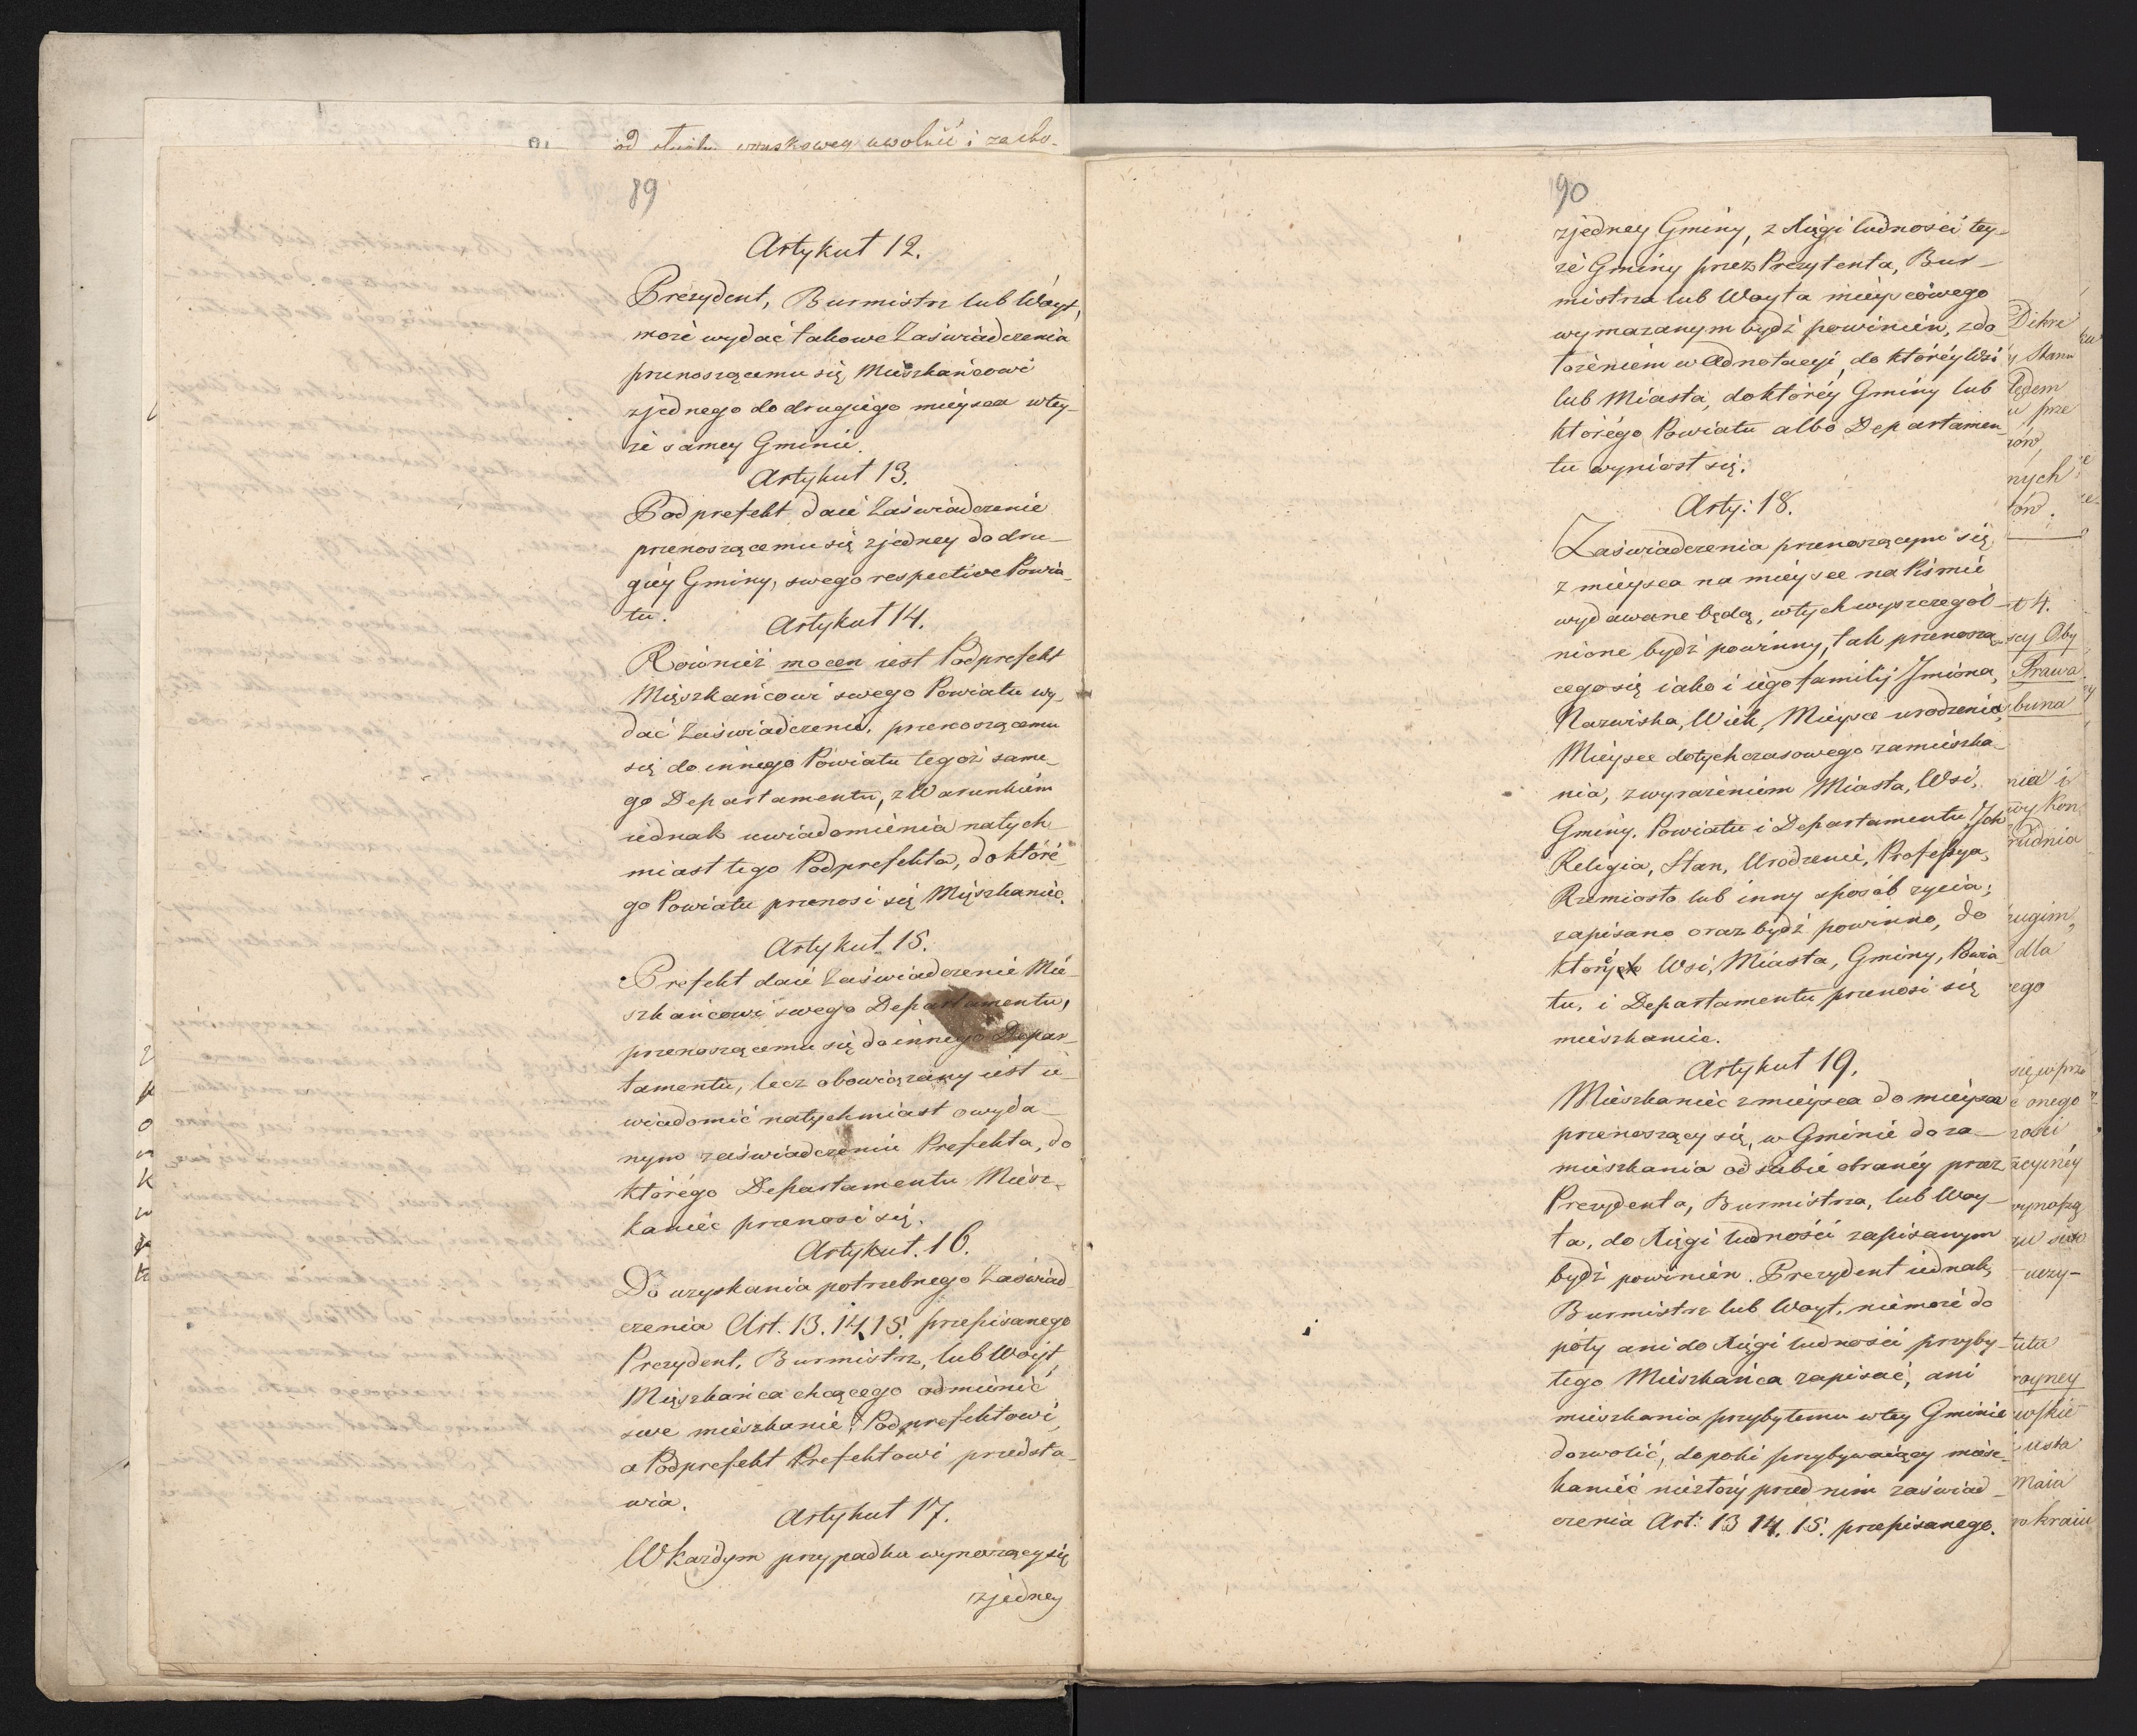 89
Artykuł 12.
Prezydent, Burmistrz lub Woyt,
może wydać takowe Zaświadczenia
przenoszącemu się Mieszkańcowi
zjednego do drugiego mieysca wtey-
że samey Gminie.
Artykuł 13.
Podprefekt daie Zaświadczenie
przenoszącemu się zjedney do dru-
giey Gminy, swego respective Powia-
tu.
Artykuł 14.
Również mocen iest Podprefekt
Mięszkańcowi swego Powiatu wy-
dać Zaświadczenie, przenoszącemu
się do innego Powiatu tegoż same-
go Departamentu, z Warunkiem
iednak uwiadomienia natych-
miast tego Podprefekta, do które-
go Powiatu przenosi się Mięszkaniec.
Artykuł 15.
Prefekt daie Zaświadczenie Mie-
szkańcowi swego Departamentu,
przenoszącemu się do innego Depar-
tamentu, lecz obowiązany iest u-
wiadomić natychmiast o wyda-
nym zaświadczeniu Prefekta, do
którego Departamentu Miesz-
kaniec przenosi się.
Artykuł. 16.
Do uzyskania potrzebnego Zaświad-
czenia Art. 13. 14. 15. przepisanego
Prezydent, Burmistrz, lub Woyt,
Mięszkańca chcącego odmienić
swe mieszkanie, Podprefektowi,
a Podprefekt Prefektowi przedsta-
wia.
Artykuł 17.
W każdym przypadku wynoszący się
zjedney
90
zjedney Gminy, z Xięgi ludności tey-
że Gminy przez Prezytenta, Bur-
mistrza lub Woyta mieyscowego
wymazanym bydź powinien, zdo
łożeniem w Adnotacyi, do którey Wsi
lub Miasta, do którey Gminy lub
którego Powiatu albo Departamen-
tu wyniosł się.
Arty: 18.
Zaświadczenia przenoszącym się
z mieysca na mieysce na Piśmie
wydawane będą, wtych wyszczegól-
nione bydź powinny, tak przenoszą-
cego się iako i iego familij Jmiona,
Nazwiska, Wiek, Mieysce urodzenia,
Mieysce dotychczasowego zamieszka-
nia, z wyrażeniem Miasta, Wsi,
Gminy, Powiatu i Departamentu, Jch
Religia, Stan, Urodzenie, Professya,
Rzemiosło lub inny sposób życia;
zapisano oraz bydź powinno, do
którey Wsi, Miasta, Gminy, Powia-
tu, i Departamentu przenosi się
mieszkaniec.
Artykuł 19.
Mieszkaniec z mieysca do mieysca
przenoszący się, w Gminie do za-
mieszkania od siebie obraney przez
Prezydenta, Burmistrza, lub Woy-
ta, do Xięgi ludności zapisanym
bydź powinien. Prezydent iednak,
Burmistrz lub Woyt, niemoże do
póty ani do Xięgi ludności przyby-
tego Mieszkańca zapisać, ani
mieszkania przybytemu wtey Gminie
dozwolić, dopoki przybywaiący miesz-
kaniec niezłoży przed nim zaświad-
czenia Art: 13 14. 15. przepisanego.